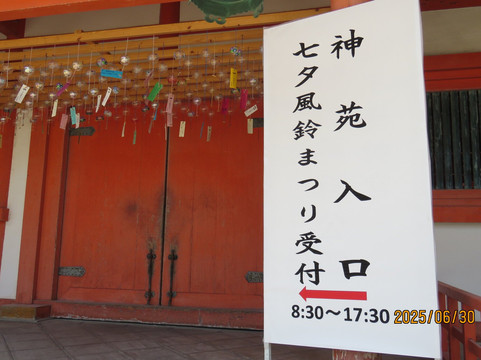 神苑入口
七夕風鈴まつり受付
8:30～17:30
2025/06/30